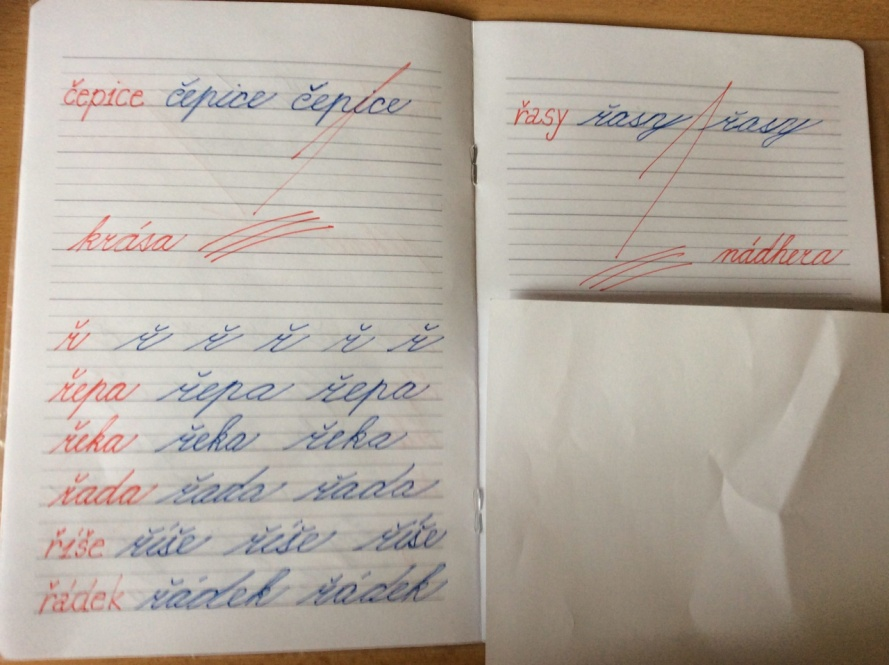 čepice čepice čepice
krása
ř ř ř ř ř ř
řepa řepa řepa
řeka řeka řeka
řada řada řada
říše říše říše
řádek řádek řádek
řasy řasy řasy
nádhera